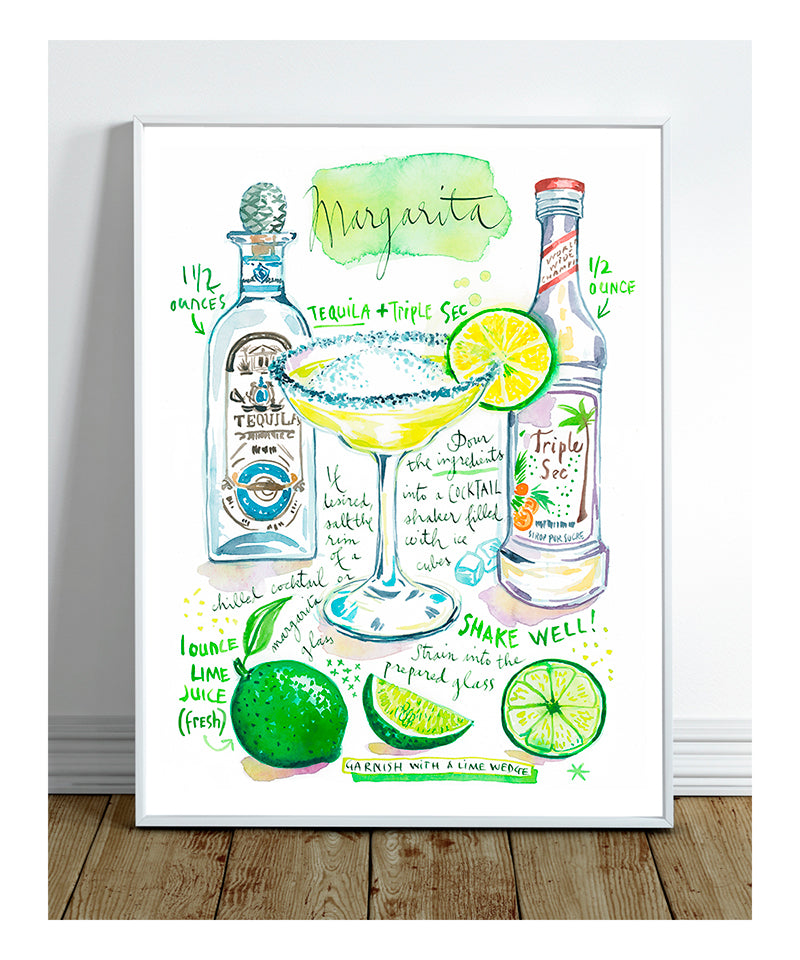 Margarita
1 1/2
OUNCES
TEQUILA + TRIPLE SEC
1/2
OUNCE
WORLD
WIDE
CHAMPI
TEQUILA
Triple
Sec
SIROP PUR SUCRE
If
desired,
salt the
rim
of a
chilled cocktail or
margarita
glass
Pour
the ingredients
into a COCKTAIL
shaker filled
with ice
cubes
SHAKE WELL!
Strain into the
prepared glass
1 OUNCE
LIME
JUICE
(FRESH)
GARNISH WITH A LIME WEDGE